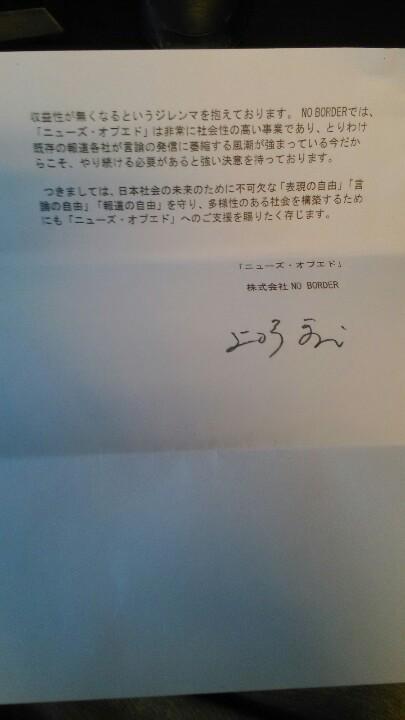 収益性が無くなるというジレンマを抱えております。 NO BORDERでは、
「ニューズ・オプエド」は非常に社会性の高い事業であり、とりわけ
既存の報道各社が言論の発信に萎縮する風潮が強まっている今だか
らこそ、やり続ける必要があると強い決意を持っております。
つきましては、日本社会の未来のために不可欠な「表現の自由」「言
論の自由」「報道の自由」を守り、多様性のある社会を構築するため
にも「ニューズ・オプエド」へのご支援を賜りたく存じます。
「ニューズ・オプエド」
株式会社 NO BORDER